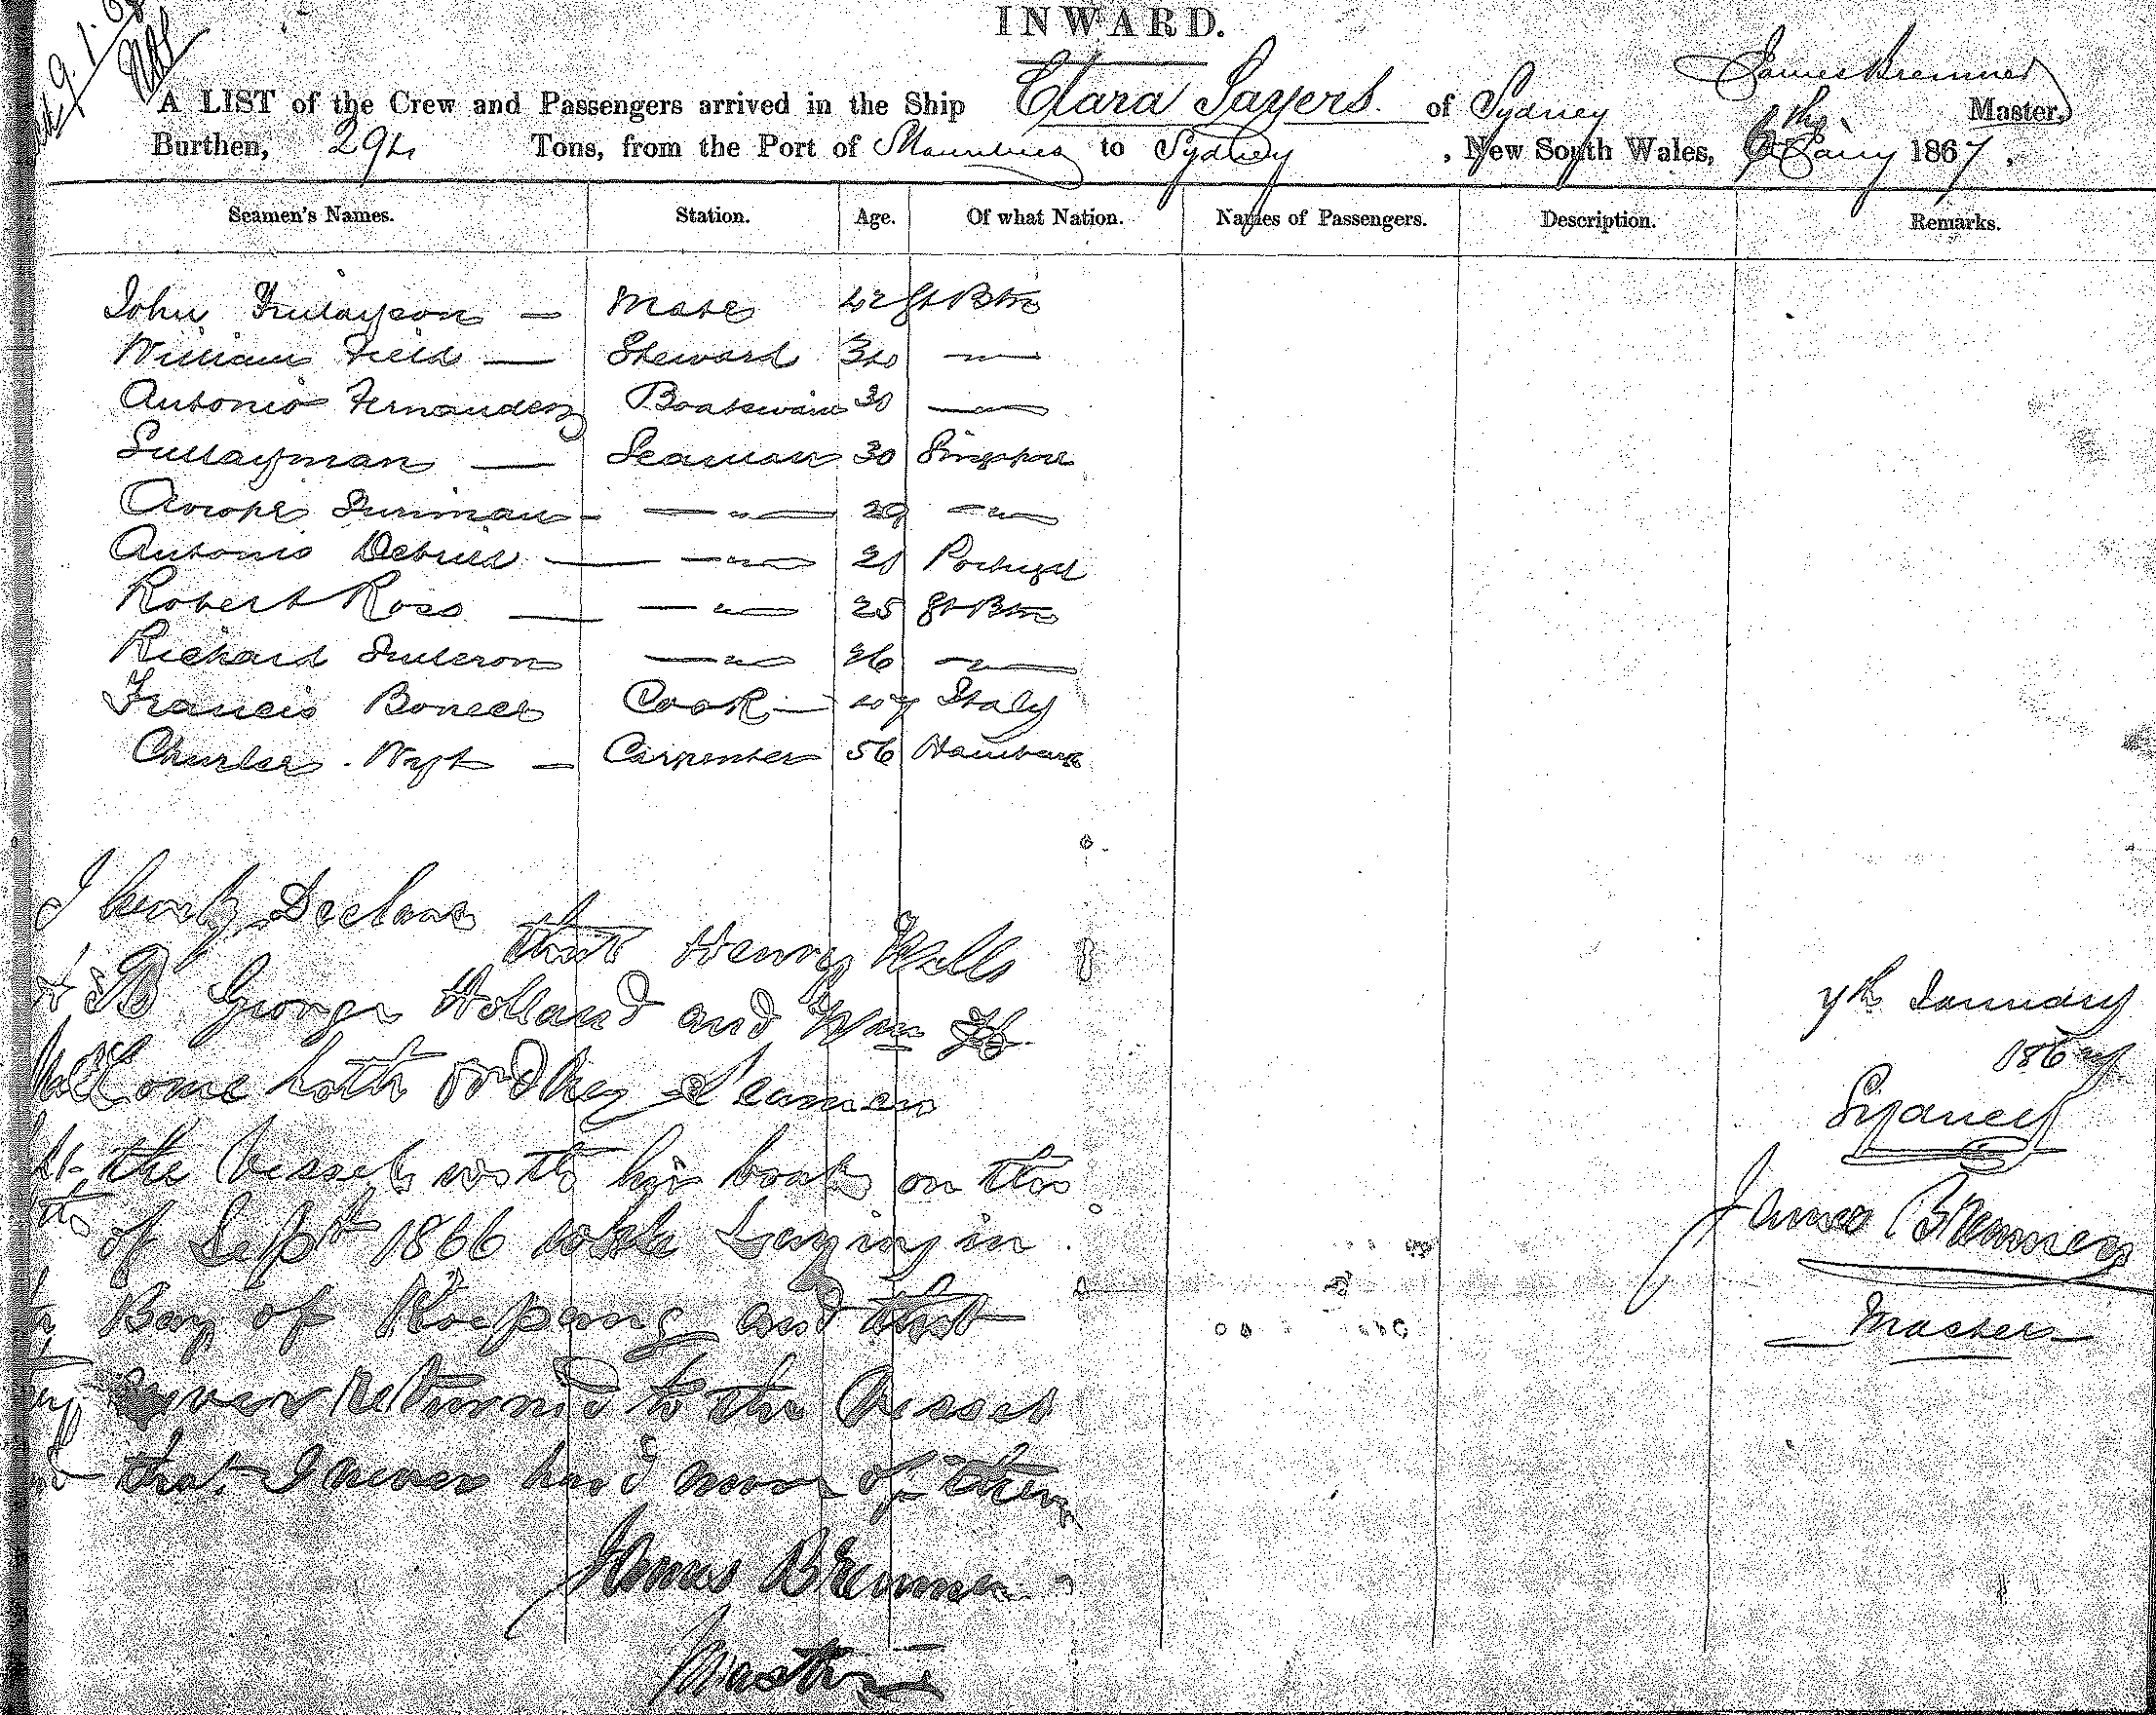 INWARD.
James Bremner
A LIST of the Crew and Passengers arrived in the Ship Clara Sayers of Sydney Master,
Burthen, 294 Tons, from the Port of Mauritius to Sydney, New South Wales, 1867.
Seamen's Names. Station. Age. Of what Nation. Names of Passengers. Description. Remarks.
John Finlayson — Mate 42 Gt Btn
William Field — Steward 30 — " —
Antonio Fernandez Boatswain 30 — " —
Sullayman — Seaman 30 Singapore
— " — 29 — " —
Antonio — — " — 21 Portugal
Robert Ross — — " — 25 Gt Btn
Richard — " — 26 — " —
Francis Cook — 47 Italy
Charles — Carpenter 56 Hamburg
I hereby Declare
that Henry Wells
George Holland and Wm H
both ordinary Seamen
the Vessel with her boat on the
of Sept 1866 while Laying in
Bay of Koepang and that
never Returned to the Vessel
that I never heard more of them
James Bremner
Master
7th January
1867
Sydney
James Bremner
Master